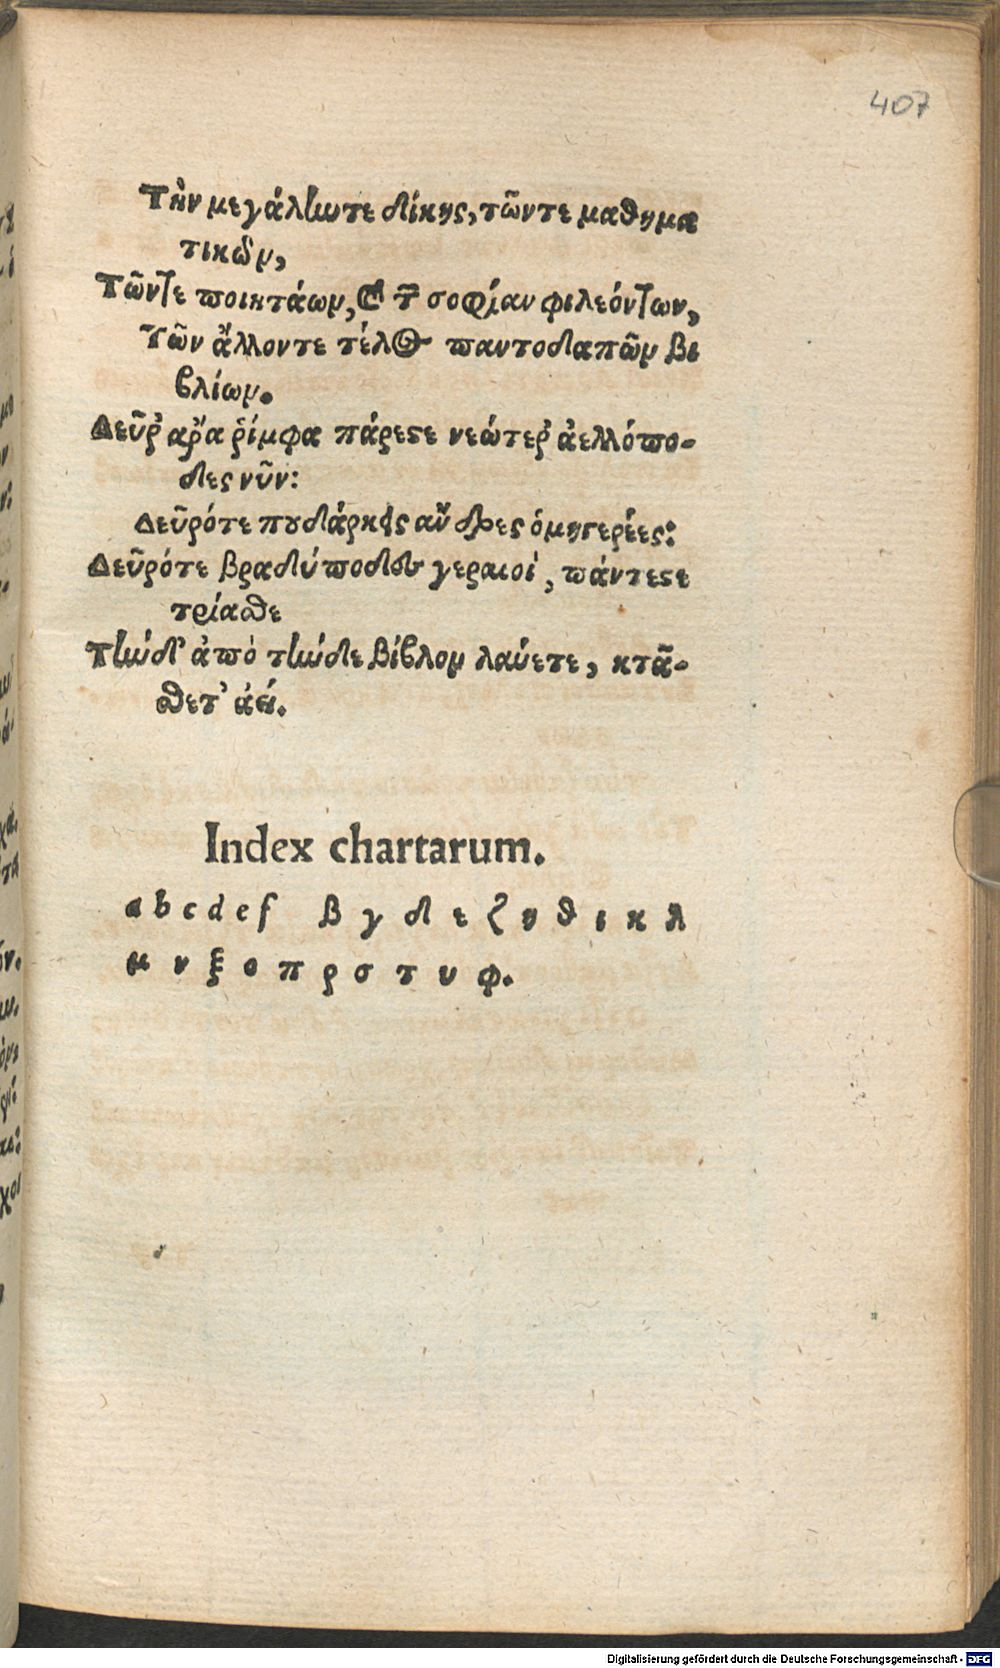 407
Τὴν μεγάλήντε δίκης, τῶντε μαθημα
τικῶν,
Τῶντε ποιητάων, καὶ τ̄ σοφίαν φιλεόντων,
Τῶν ἄλλοντε τέλος παντοδαπῶν βι
βλίων.
Δεῦρ᾽ αρ᾽α ῥίμφα πάρεστε νεώτερ᾽ ἀελλόπο-
δες νῦν:
Δεῦρότε πουδάρκεις ἄνδρες ὁμηγερέες:
Δεῦρότε βραδύποδες γεραιοὶ, πάντεστε
τρίαθε
Τήνδ᾽ ἀπὸ τήνδε βίβλον λαύετε, κτᾶ-
σθετ᾽ ἀεί.
Index chartarum.
a b c d e f β γ δ ε ζ η θ ι κ λ
μ ν ξ ο π ρ σ τ υ φ.
Digitalisierung gefördert durch die Deutsche Forschungsgemeinschaft - DFG